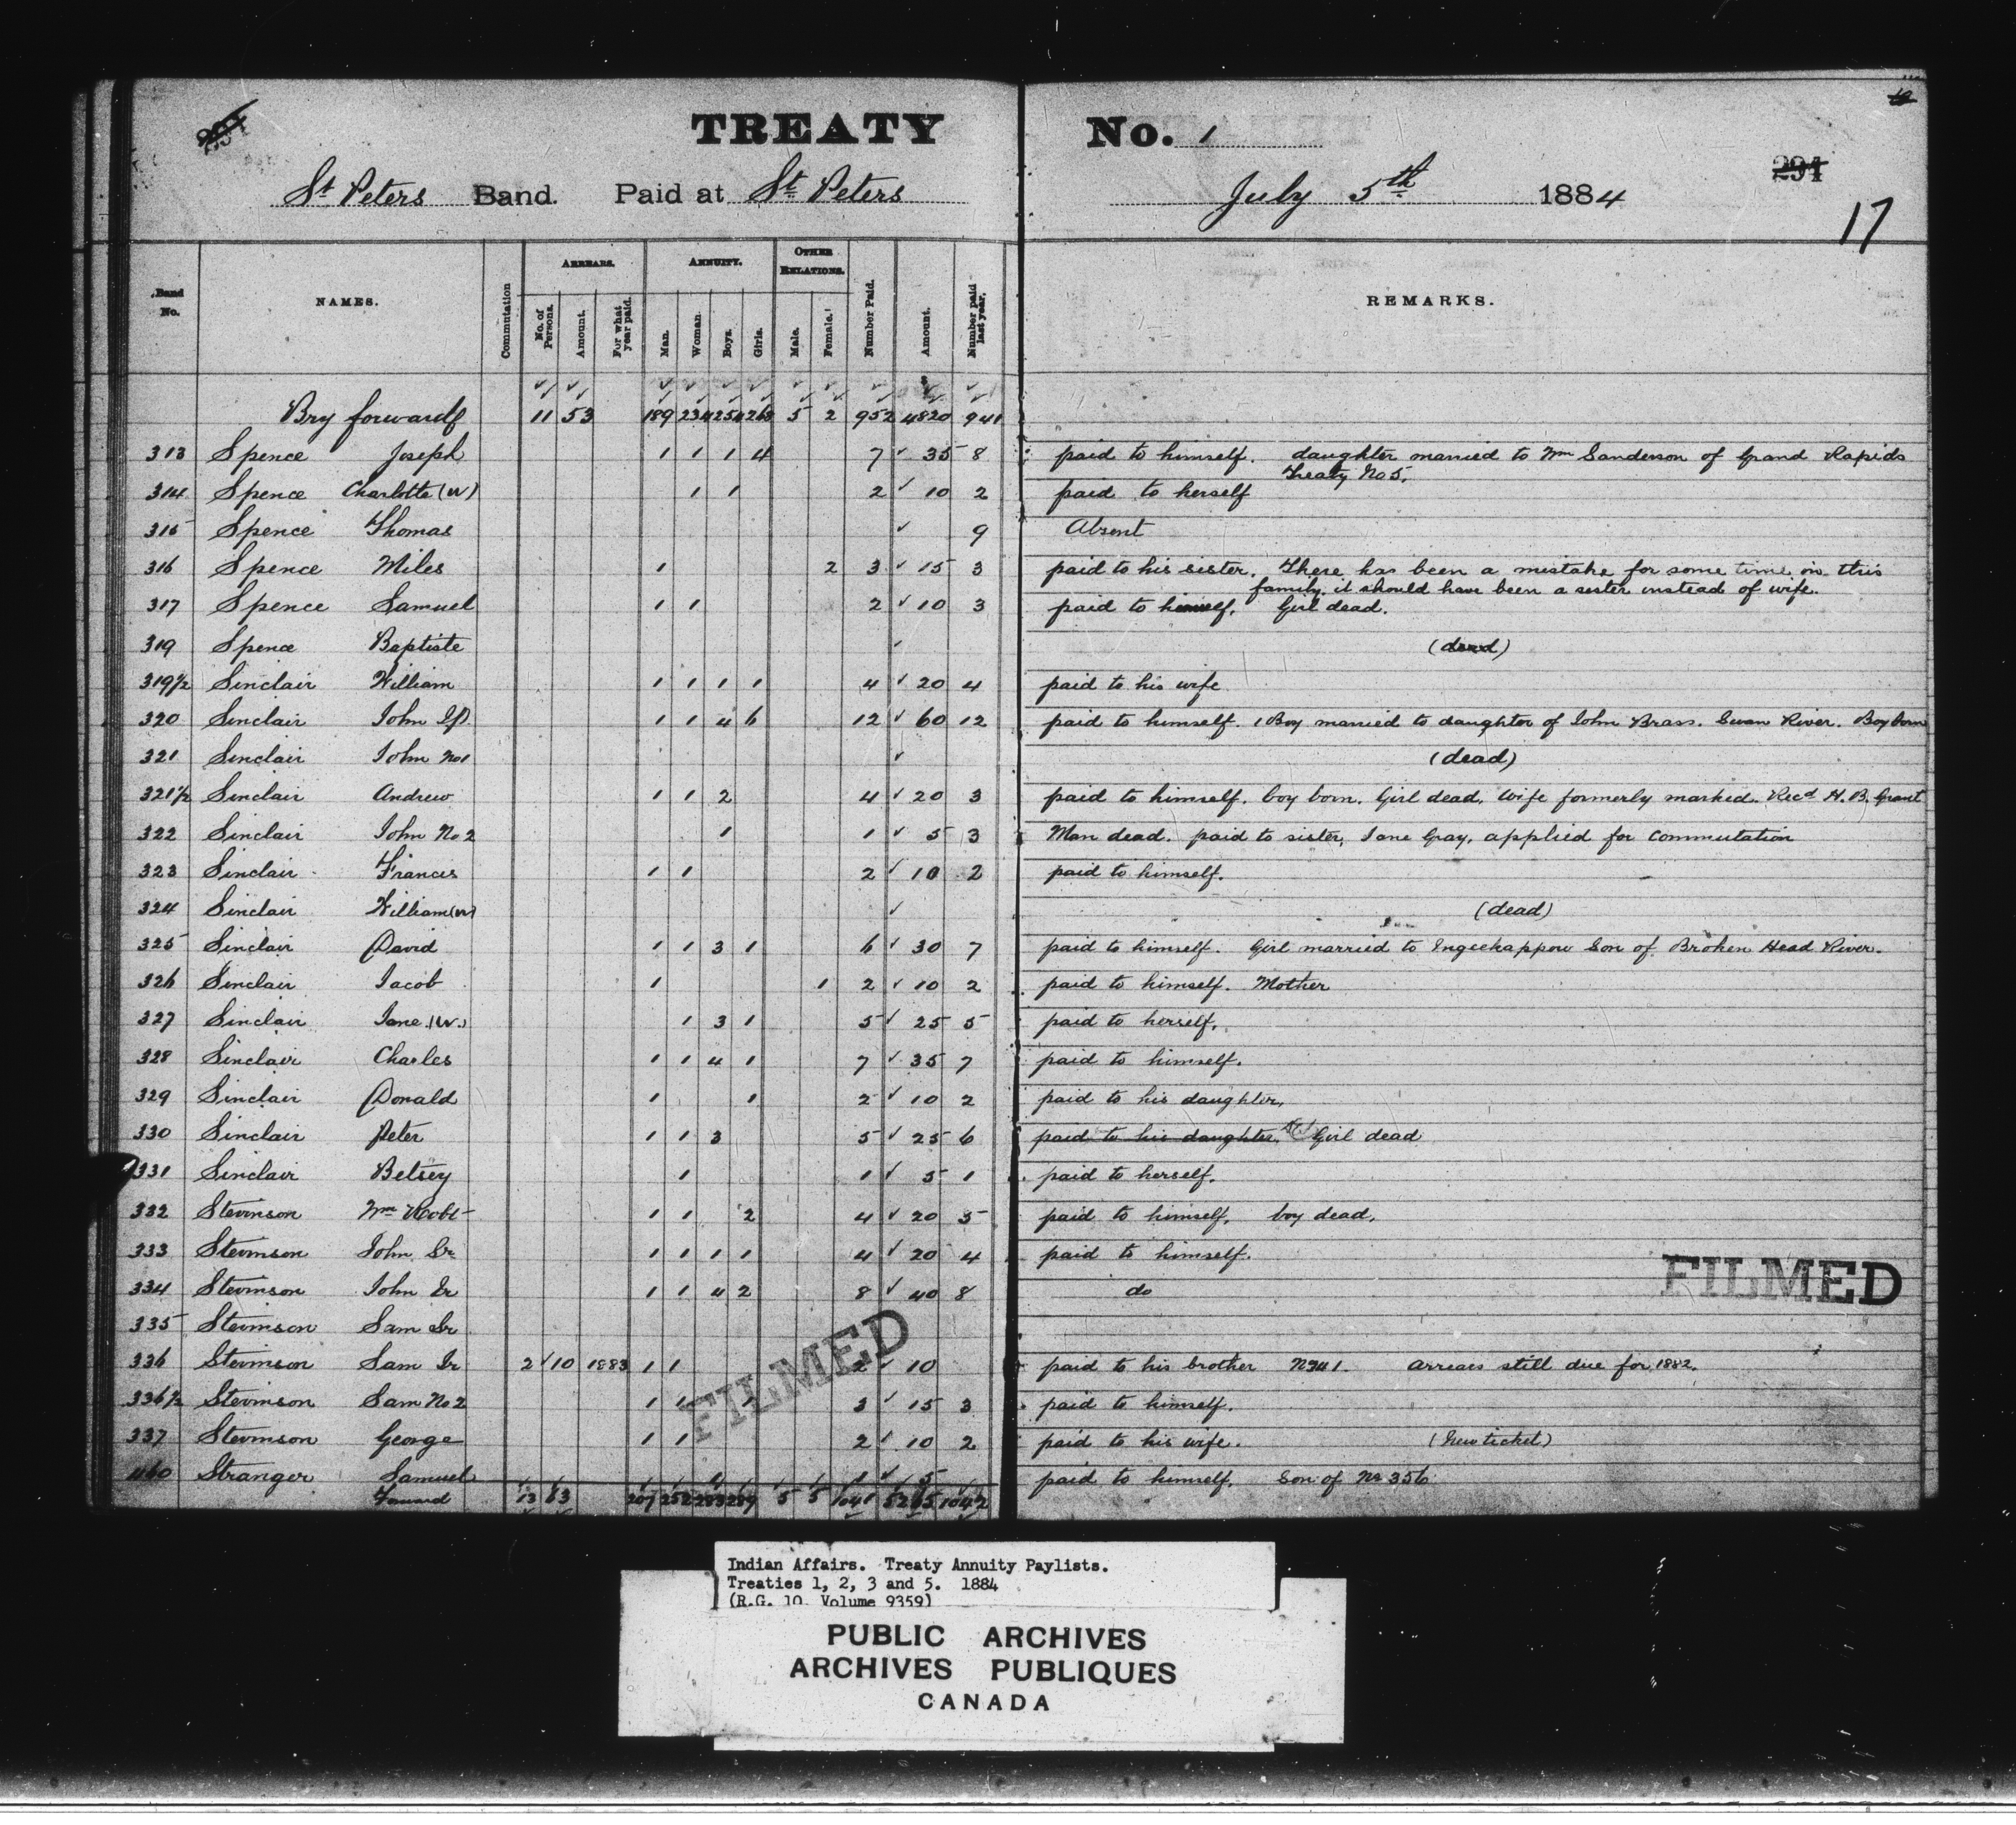 TREATY No. 1
291
St Peters Band. Paid at St Peters July 5th 1884
17
Band No. NAMES. Commutation ARREARS. No. of Persons. Amount. For what year paid. ANNUITY. Man. Woman. Boys. Girls. OTHER RELATIONS. Male. Female. Number Paid. Amount. Number paid last year. REMARKS.
Bry forward 11 53 189 234 254 268 5 2 952 4820 941
313 Spence Joseph 1 1 1 4 7 35 8 paid to himself. daughter married to Wm Sanderson of Grand Rapids
Treaty No 5.
314 Spence Charlotte (W) 1 1 2 10 2 paid to herself
315 Spence Thomas 9 Absent
316 Spence Miles 1 2 3 15 3 paid to his sister. There has been a mistake for some time in this
family. it should have been a sister instead of wife.
317 Spence Samuel 1 1 2 10 3 paid to himself. Girl dead.
319 Spence Baptiste (dead)
319½ Sinclair William 1 1 1 1 4 20 4 paid to his wife
320 Sinclair John 1 1 4 6 12 60 12 paid to himself. 1 Boy married to daughter of John Brass. Swan River. Boy born
321 Sinclair John No1 (dead)
321½ Sinclair Andrew 1 1 2 4 20 3 paid to himself. boy born. Girl dead. Wife formerly marked. Recd H. B. Grant
322 Sinclair John No 2 1 1 5 3 Man dead. paid to sister, Jane Gray, applied for Commutation
323 Sinclair Francis 1 1 2 10 2 paid to himself.
324 Sinclair William (W) (dead)
325 Sinclair David 1 1 3 1 6 30 7 paid to himself. Girl married to Ingeekappow Son of Broken Head River.
326 Sinclair Jacob 1 1 2 10 2 paid to himself. Mother
327 Sinclair Jane (W.) 1 3 1 5 25 5 paid to herself.
328 Sinclair Charles 1 1 4 1 7 35 7 paid to himself.
329 Sinclair Donald 1 1 2 10 2 paid to his daughter,
330 Sinclair Peter 1 1 3 5 25 6 paid to his daughter, Girl dead
331 Sinclair Betsey 1 1 5 1 paid to herself.
332 Stevinson Wm Robt 1 1 2 4 20 5 paid to himself, boy dead,
333 Stevinson John Sr 1 1 1 1 4 20 4 paid to himself.
334 Stevinson John Jr 1 1 4 2 8 40 8 do
FILMED
335 Stevinson Sam Sr
336 Stevinson Sam Jr 2 10 1883 1 1 2 10 paid to his brother No 41. arrears still due for 1882.
FILMED
336½ Stevinson Sam No 2 1 1 1 3 15 3 paid to himself.
337 Stevinson George 1 1 2 10 2 paid to his wife. (New ticket)
460 Stranger Samuel 1 1 5 paid to himself, Son of No 356
Forward 13 63 207 252 283 289 5 5 1041 5265 1042
Indian Affairs. Treaty Annuity Paylists.
Treaties 1, 2, 3 and 5. 1884
(R.G. 10 Volume 9359)
PUBLIC ARCHIVES
ARCHIVES PUBLIQUES
CANADA